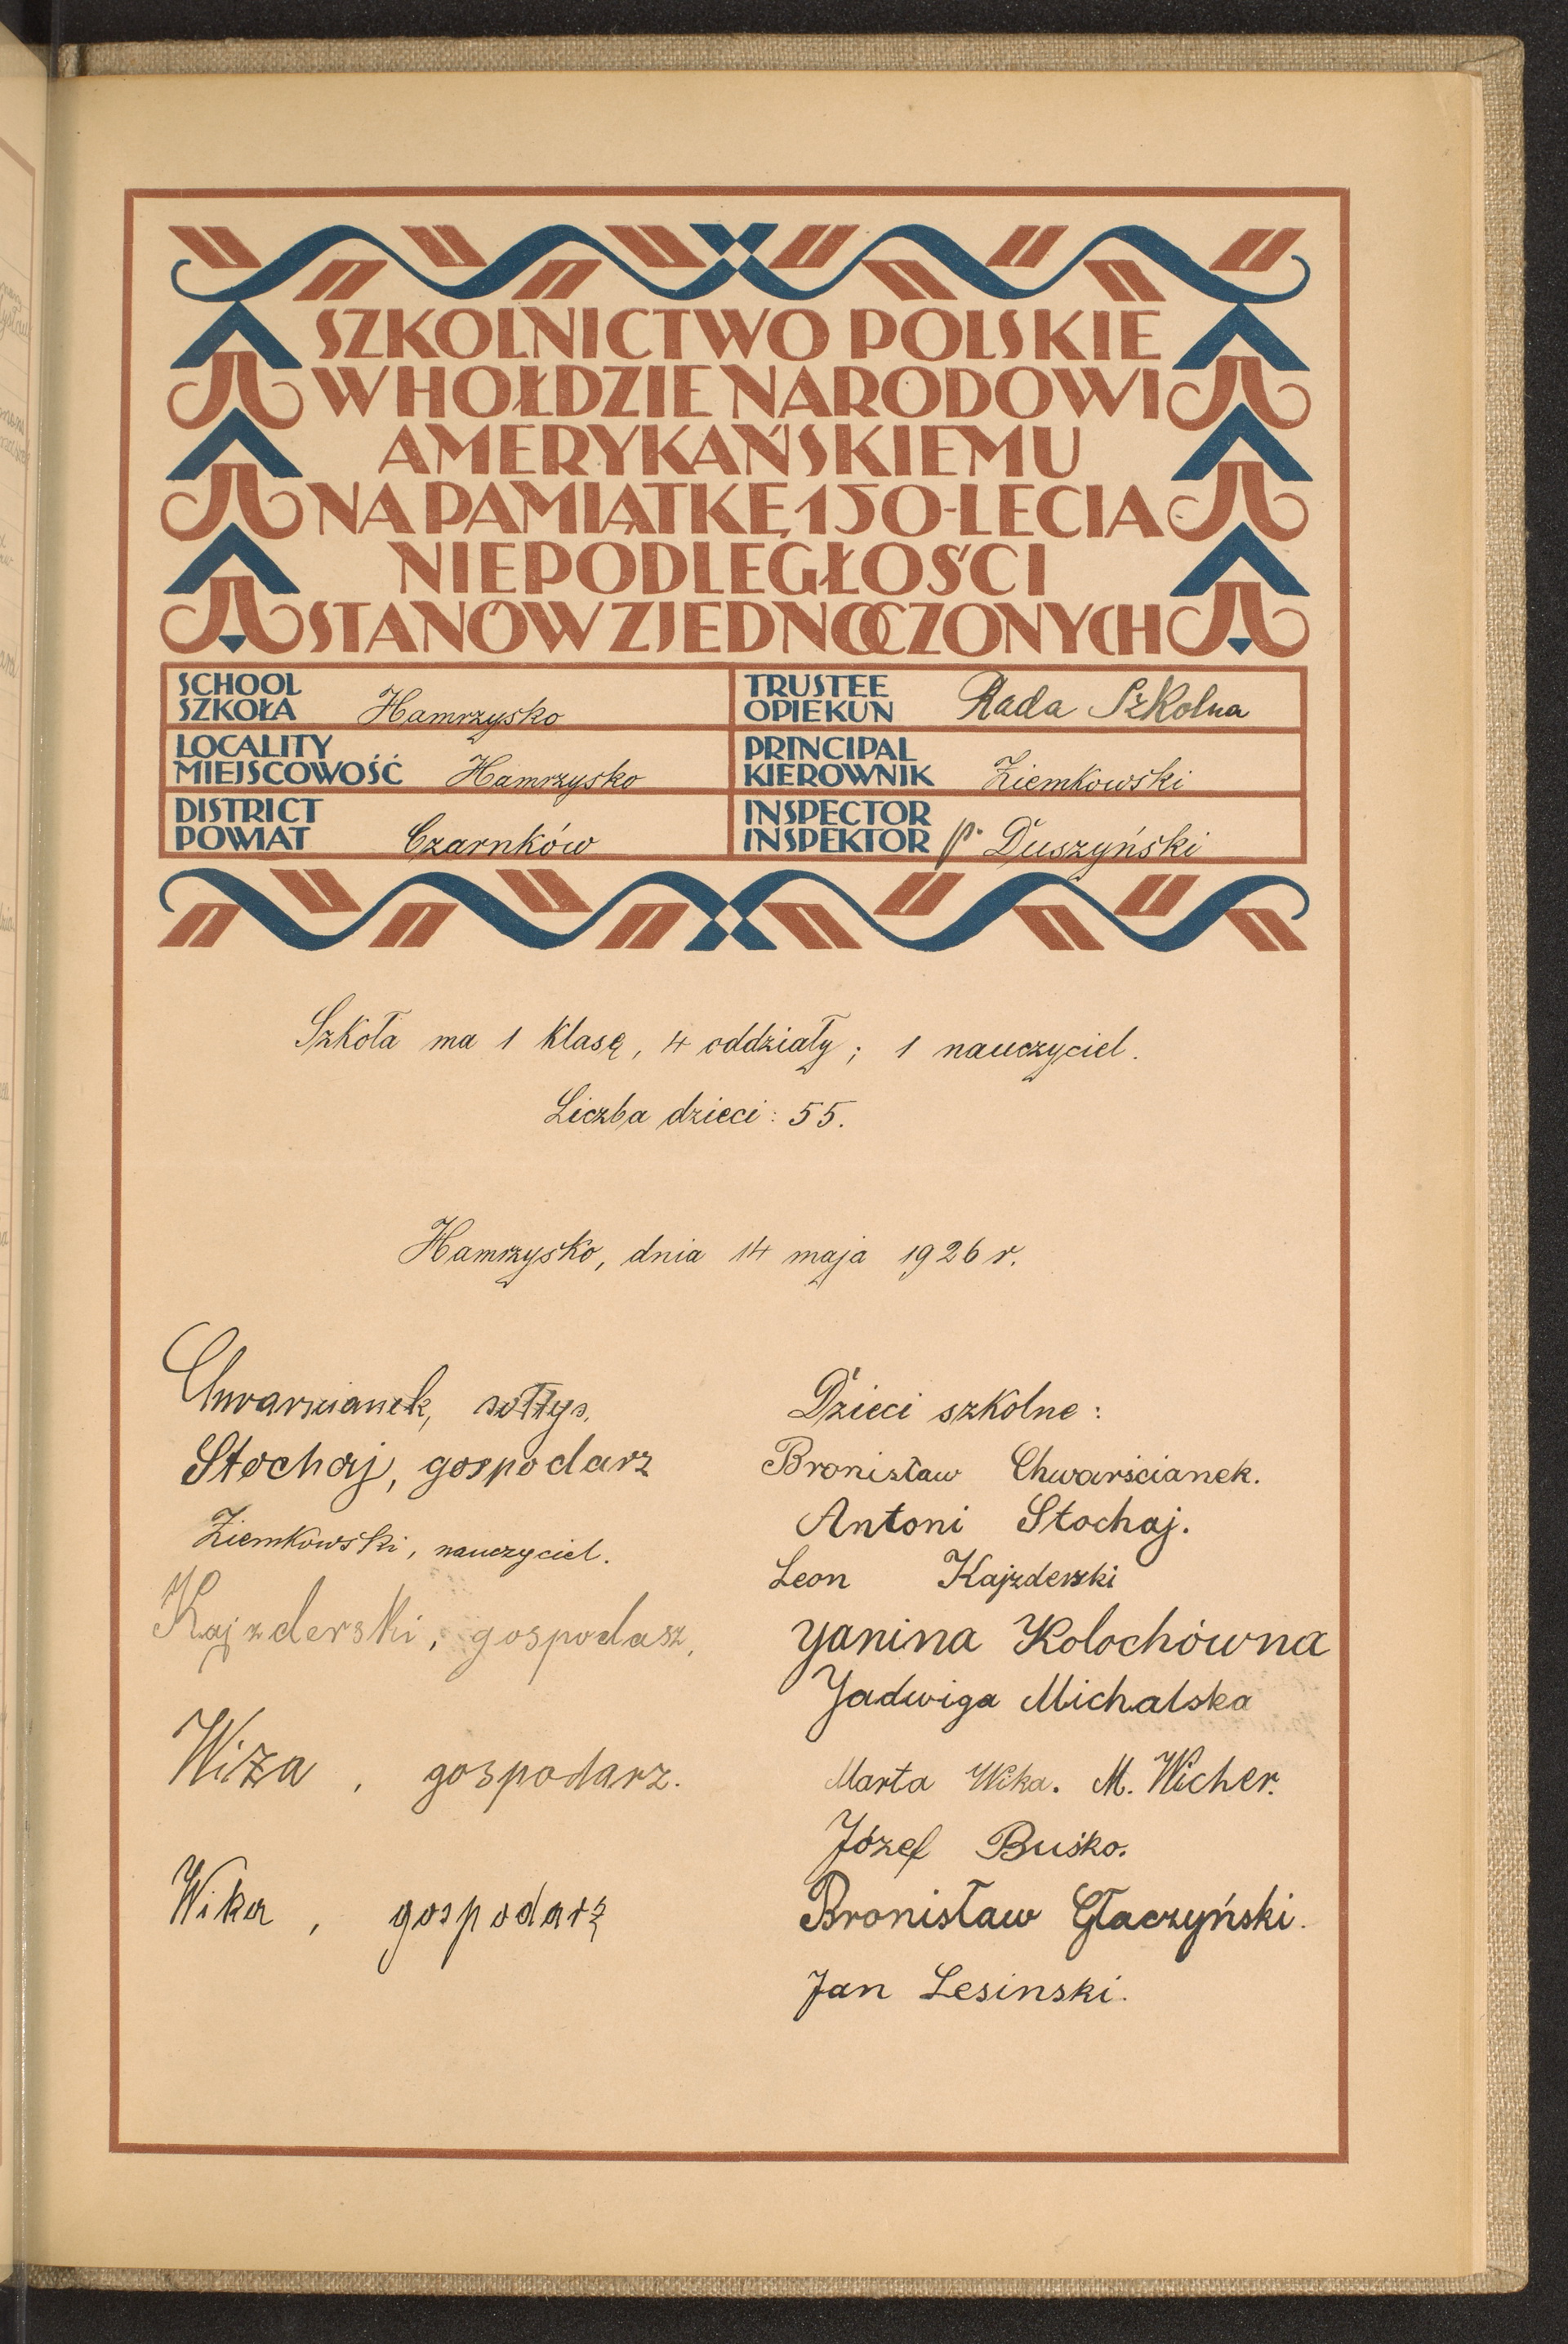 SZKOLNICTWO POLSKIE
W HOŁDZIE NARODOWI
AMERYKAŃSKIEMU
NA PAMIĄTKĘ 150-LECIA
NIEPODLEGŁOŚCI
STANÓW ZJEDNOCZONYCH
SCHOOL
SZKOŁA Hamrzysko
TRUSTEE
OPIEKUN Rada Szkolna
LOCALITY
MIEJSCOWOŚĆ Hamrzysko
PRINCIPAL
KIEROWNIK Ziemkowski
DISTRICT
POWIAT Czarnków
INSPECTOR
INSPEKTOR p. Duszyński
Szkoła ma 1 klasę, 4 oddziały; 1 nauczyciel.
Liczba dzieci: 55.
Hamrzysko, dnia 14 maja 1926 r.
Chwarscianek, sołtys,
Stochaj, gospodarz
Ziemkowski, nauczyciel.
Kajzderski, gospodasz,
Wiza, gospodarz.
Wika, gospodarz
Dzieci szkolne:
Bronisław Chwarścianek.
Antoni Stochaj.
Leon Kajzderski
Yanina Kolochówna
Jadwiga Michalska
Marta Wika. M. Wicher.
Józef Buśko.
Bronisław Głaczyński.
Jan Lesinski.